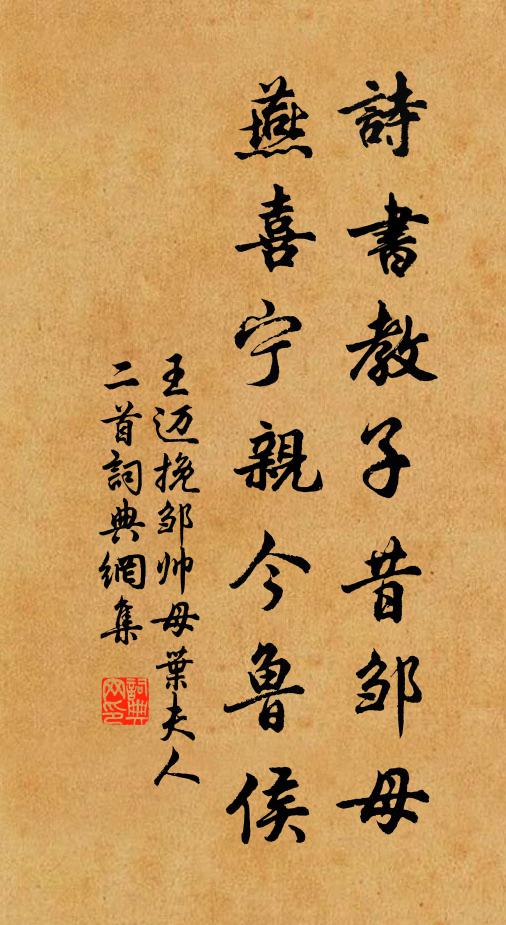 詩書教子昔邹母
燕喜宁親今魯侯
王迈挽邹帅母葉夫人
二首詞典網集
詞典
网印